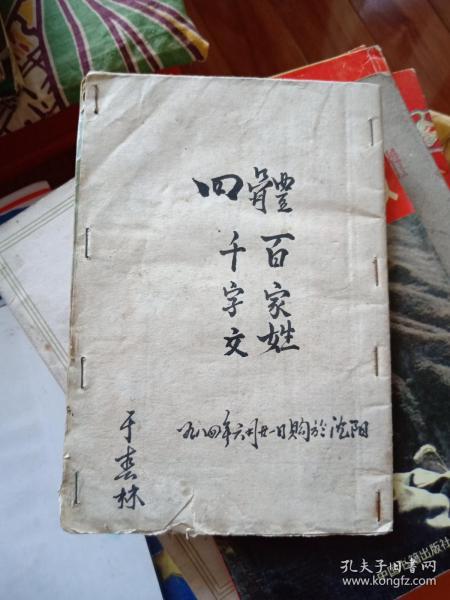 四體
百家姓
千字文
一九八四年六月廿一日购於沈阳
于春林
出版社
孔夫子旧书网
https://www.kongfz.com/